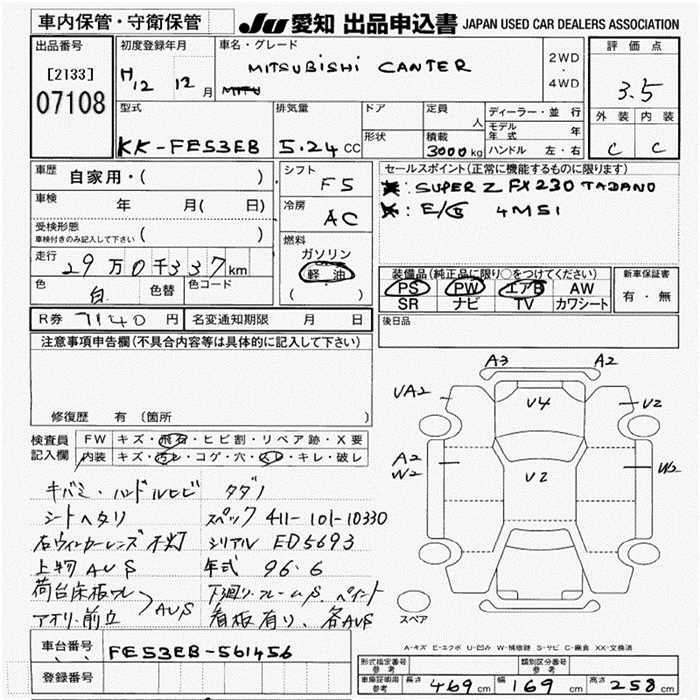 車内保管・守衛保管 JU 愛知 出品申込書 JAPAN USED CAR DEALERS ASSOCIATION
出品番号 [2133] 07108
初度登録年月 H12 12月
車名・グレード MITSUBISHI CANTER 2WD・4WD
評価点 3.5
外装 C 内装 C
型式 KK-FE53EB
排気量 5.24 CC
ドア 形状
定員 人
積載 3000kg
ディーラー・並行
モデル年式 年
ハンドル 左・右
車歴 自家用・( )
車検 年 月( 日)
受検形態 車検付きのみ記入して下さい ( )
走行 29万0千337km
色 白 色替 色コード
シフト F5
冷房 AC
燃料 ガソリン 軽油 ( )
セールスポイント(正常に機能するものに限ります)
SUPER Z FX230 TADANO
E/G 4M51
装備品(純正品に限り○をつけてください)
PS PW エアB AW
SR ナビ TV カワシート
新車保証書 有・無
R券 7140円 名変通知期限 月 日
後日品
注意事項申告欄(不具合内容等は具体的に記入して下さい)
修復歴 有(箇所
検査員記入欄
FW キズ・飛石・ヒビ割・リペア跡・X要
内装 キズ・汚レ・コゲ・穴・スレ・キレ・破レ
キバミ・ハンドルヒビ タダノ
シートヘタリ スペック 411-101-10330
右ウィンカーレンズ不灯 シリアル ED5693
上物AUS 年式 96.6
荷台床板ワレ 下廻り・フレームS、ペイント
アオリ・前立 AUS 看板有り、各AUS
A3 A2
UA2 U4 U2
A2 W2 U2 W2
スペア
A-キズ E-エクボ U-凹み W-補修跡 S-サビ C-腐食 XX-交換済
車台番号 FE53EB-561456
登録番号
形式指定番号 参考 類別区分番号 参考
車庫証明用 参考 長さ 469cm 幅 169cm 高さ 258cm